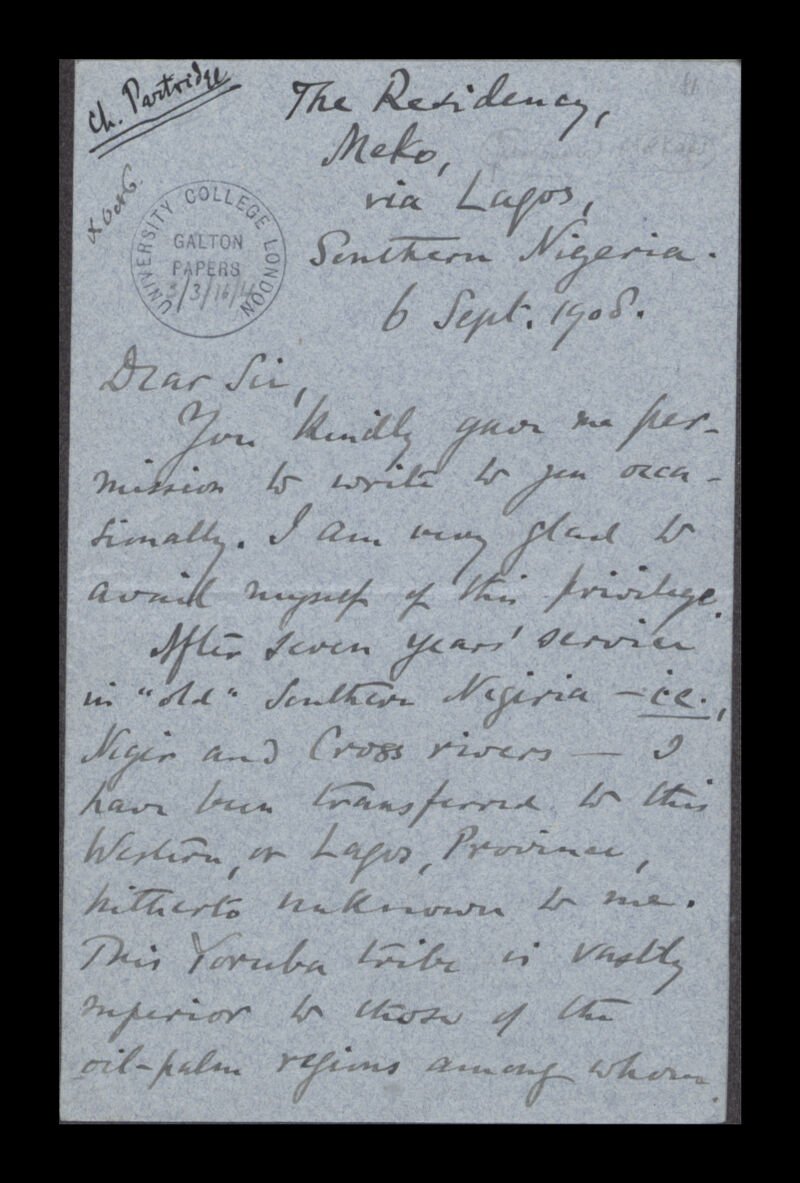 Ch. Partridge
The Residency,
Meko,
via Lagos,
Southern Nigeria.
6 Sept. 1908.
UNIVERSITY COLLEGE LONDON
GALTON
PAPERS
3/3/16/4
Dear Sir,
You kindly gave me per-
mission to write to you occa-
sionally. I am very glad to
avail myself of this privilege.
After seven years' service
in "old" Southern Nigeria — i.e.,
Niger and Cross rivers — I
have been transferred to this
Western, or Lagos, Province,
hitherto unknown to me.
This Yoruba tribe is vastly
superior to those of the
oil-palm regions among whom